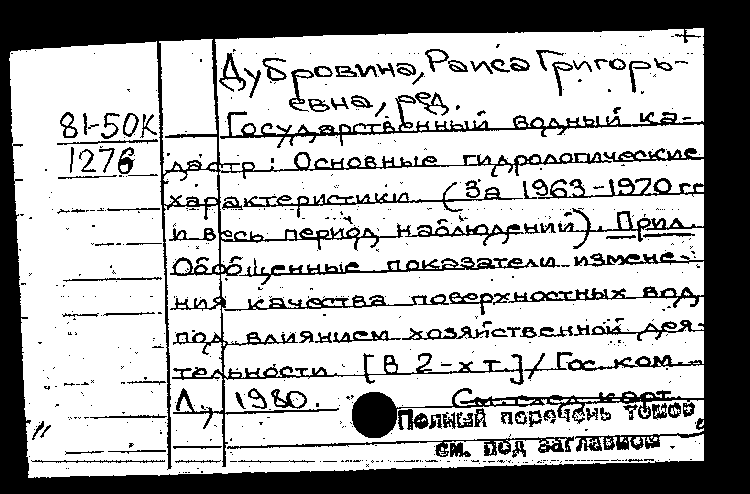 Дубровина, Раиса Григорь-
евна, ред.
81-50К
1276
Государственный водный ка-
дастр: Основные гидрологические
характеристики (За 1963-1970 гг
и весь период наблюдений). Прил.
Обобщенные показатели измене-
ния качества поверхностных вод
под влиянием хозяйственной дея-
тельности. [В 2-х т.] / Гос. ком.
Л., 1980.
См. след. карт.
Полный перечень томов
см. под заглавием